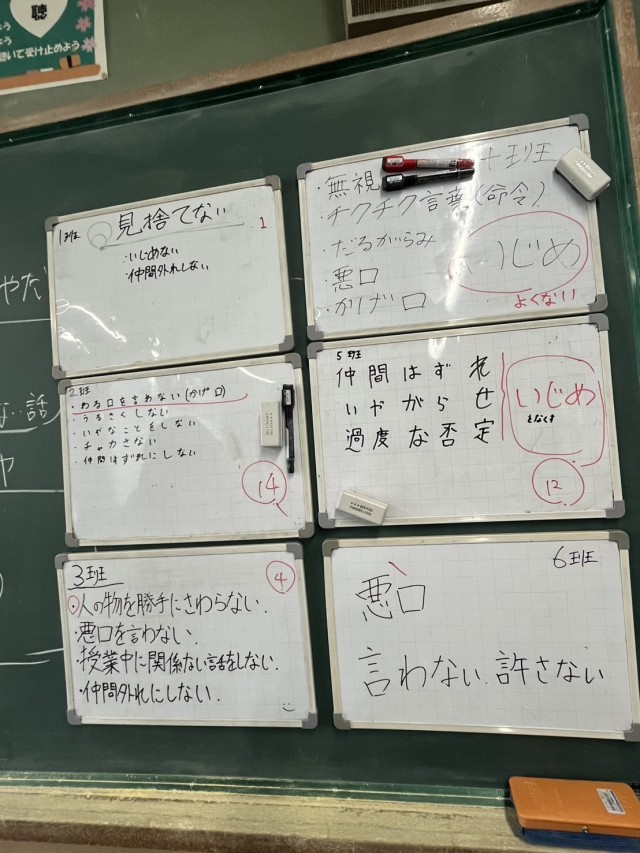 聴
いて受け止めよう
1班
見捨てない
1
・いじめない
・仲間外れしない
2班
・わる口を言わない(かげ口)
・うるさくしない
・いやなことをしない
・チャカさない
・仲間はずれにしない
14
3班
4
・人の物を勝手にさわらない.
・悪口を言わない.
・授業中に関係ない話をしない.
・仲間外れにしない.
・無視
・チクチク言葉(命令)
・だるがらみ
・悪口
・かげ口
いじめ
よくない
5班
仲間はずれ
いやがらせ
過度な否定
いじめ
をなくす
12
6班
悪口
言わない.許さない